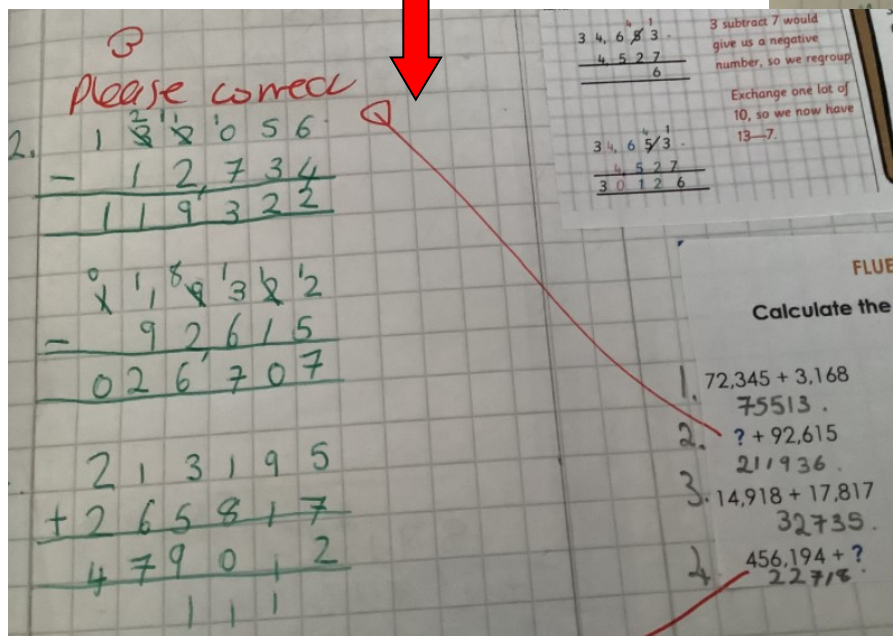 3
Please correct
2. 1 3 2 0 5 6
- 1 2,7 3 4
1 1 9 3 2 2
1 1 9 3 2 2
- 9 2,6 1 5
0 2 6 7 0 7
2 1 3 1 9 5
+ 2 6 5 8 1 7
4 7 9 0 1 2
1 1 1
4 1
3 4, 6 5 3
4, 5 2 7
6
3 subtract 7 would
give us a negative
number, so we regroup
Exchange one lot of
10, so we now have
13—7.
4 1
3 4, 6 5 3
4, 5 2 7
3 0 1 2 6
FLUE
Calculate the
1. 72,345 + 3,168
75513.
2. ? + 92,615
211936.
3. 14,918 + 17,817
32735.
4. 456,194 + ?
22718.